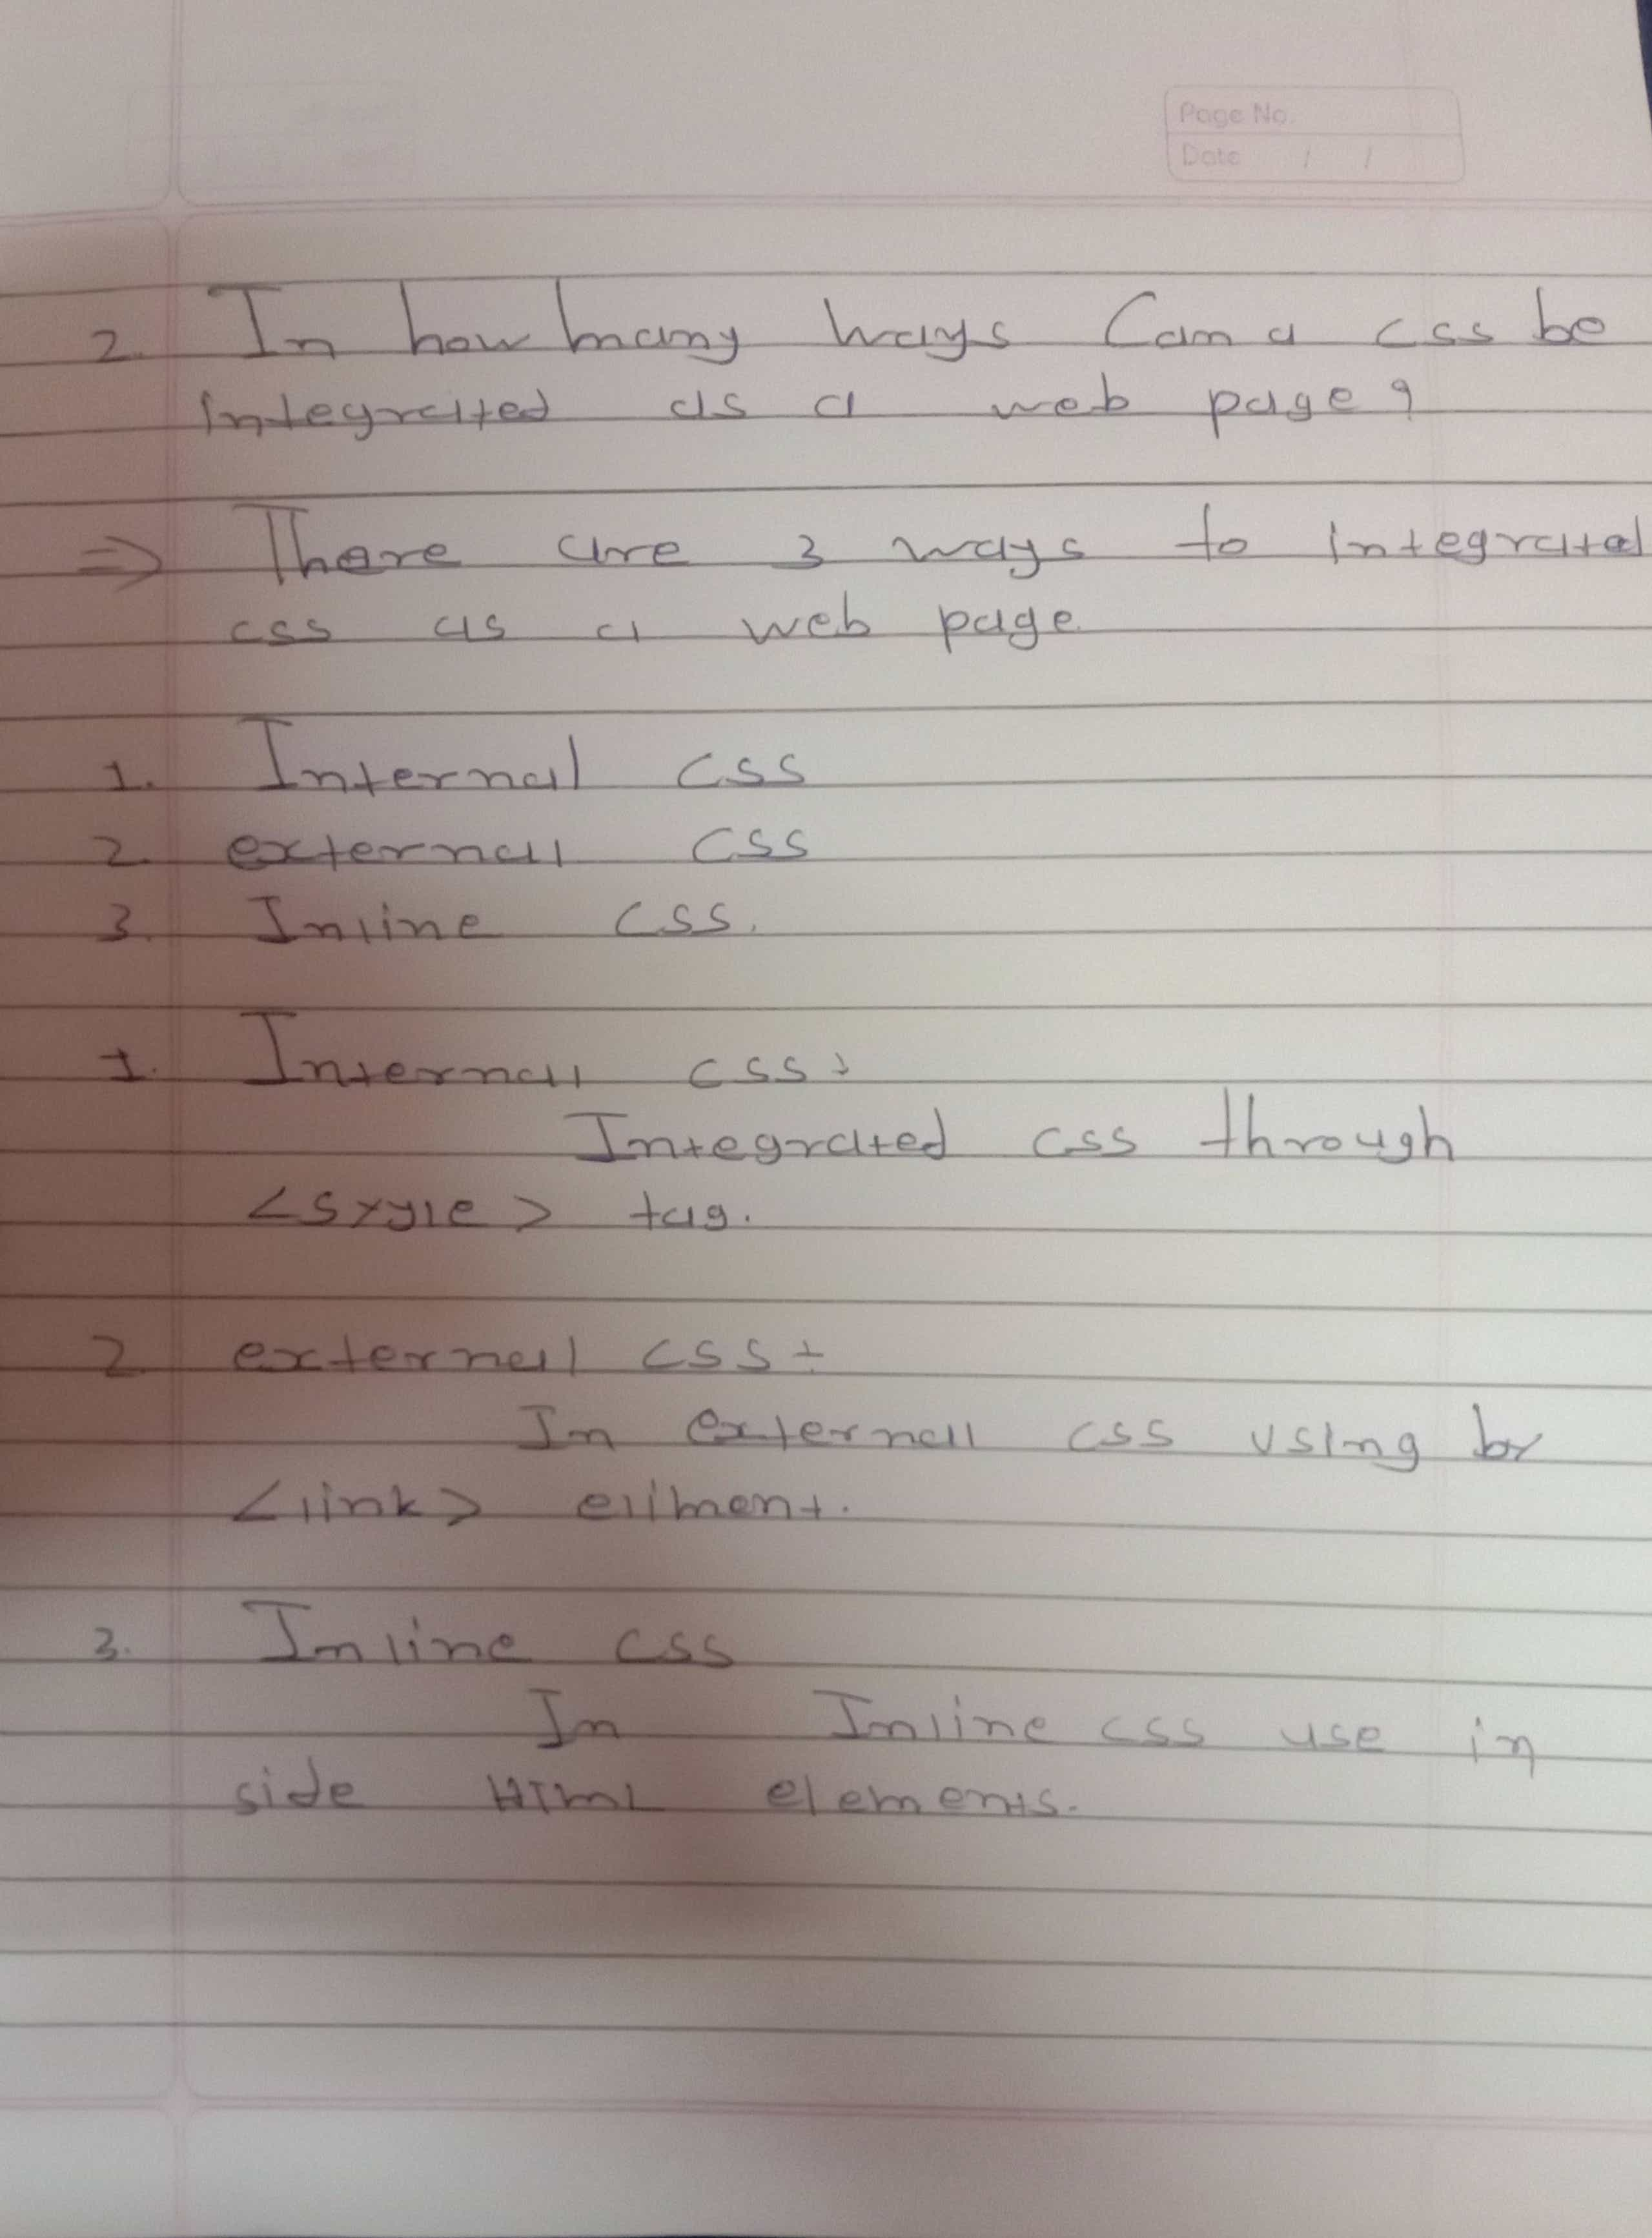 Page No.
Date / /
2. In how many ways Can a css be
integrated as a web page?
=> There are 3 ways to integrated
css as a web page.
1. Internal CSS
2. external CSS
3. Inline CSS.
1. Internal css:
Integrated css through
<style> tag.
2. external css:
In external css using by
<link> eliment.
3. Inline css
In Inline css use in
side HTML elements.